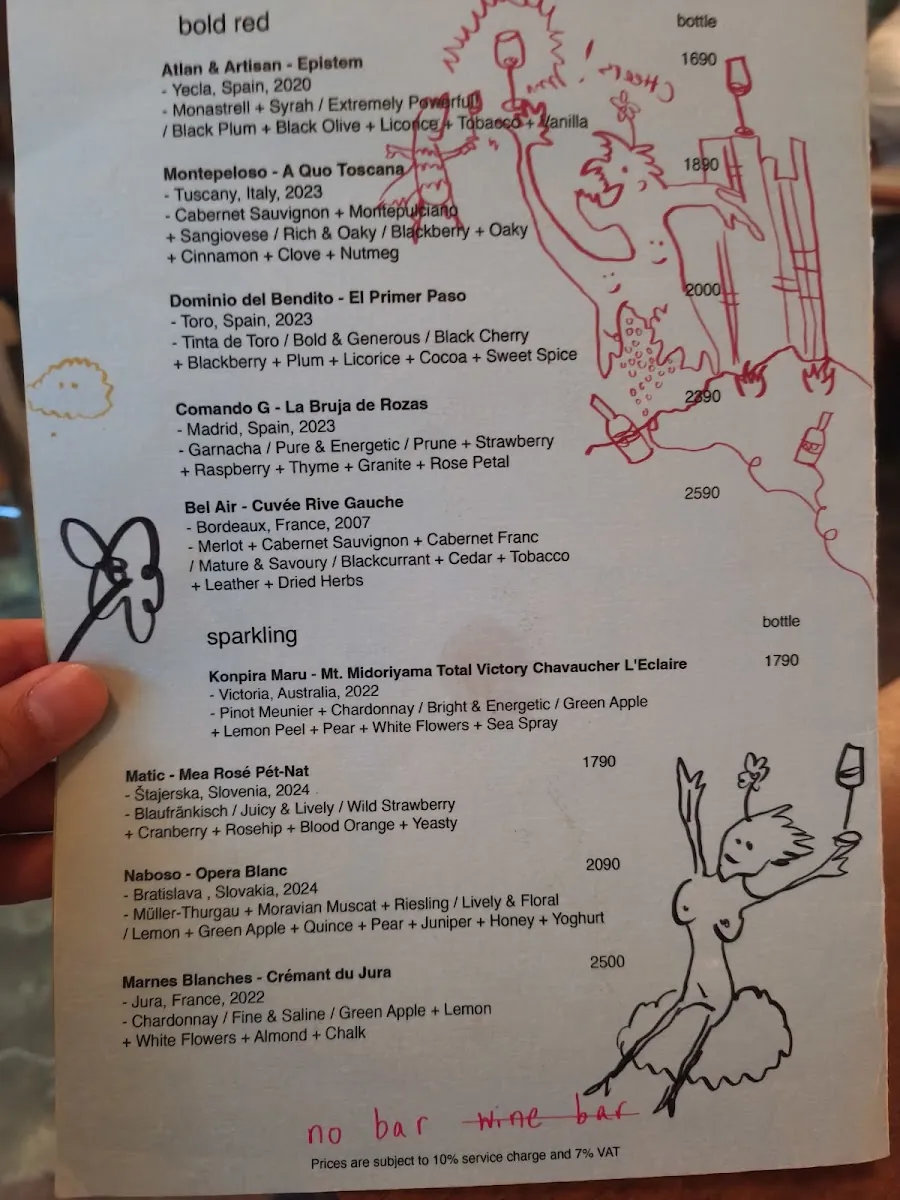 bold red
bottle
Atlan & Artisan - Epistem
1690
- Yecla, Spain, 2020
- Monastrell + Syrah / Extremely Powerful
/ Black Plum + Black Olive + Licorice + Tobacco + Vanilla
Cheers!
Montepeloso - A Quo Toscana
1890
- Tuscany, Italy, 2023
- Cabernet Sauvignon + Montepulciano
+ Sangiovese / Rich & Oaky / Blackberry + Oaky
+ Cinnamon + Clove + Nutmeg
Dominio del Bendito - El Primer Paso
2000
- Toro, Spain, 2023
- Tinta de Toro / Bold & Generous / Black Cherry
+ Blackberry + Plum + Licorice + Cocoa + Sweet Spice
Comando G - La Bruja de Rozas
2390
- Madrid, Spain, 2023
- Garnacha / Pure & Energetic / Prune + Strawberry
+ Raspberry + Thyme + Granite + Rose Petal
Bel Air - Cuvée Rive Gauche
2590
- Bordeaux, France, 2007
- Merlot + Cabernet Sauvignon + Cabernet Franc
/ Mature & Savoury / Blackcurrant + Cedar + Tobacco
+ Leather + Dried Herbs
sparkling
bottle
Konpira Maru - Mt. Midoriyama Total Victory Chavaucher L'Eclaire
1790
- Victoria, Australia, 2022
- Pinot Meunier + Chardonnay / Bright & Energetic / Green Apple
+ Lemon Peel + Pear + White Flowers + Sea Spray
Matic - Mea Rosé Pét-Nat
1790
- Štajerska, Slovenia, 2024
- Blaufränkisch / Juicy & Lively / Wild Strawberry
+ Cranberry + Rosehip + Blood Orange + Yeasty
Naboso - Opera Blanc
2090
- Bratislava , Slovakia, 2024
- Müller-Thurgau + Moravian Muscat + Riesling / Lively & Floral
/ Lemon + Green Apple + Quince + Pear + Juniper + Honey + Yoghurt
Marnes Blanches - Crémant du Jura
2500
- Jura, France, 2022
- Chardonnay / Fine & Saline / Green Apple + Lemon
+ White Flowers + Almond + Chalk
no bar wine bar
Prices are subject to 10% service charge and 7% VAT